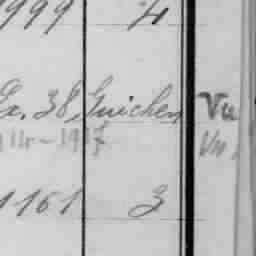 1999 4
Ex. 38, Guichen Vu
14-1917 Vu
1161 3